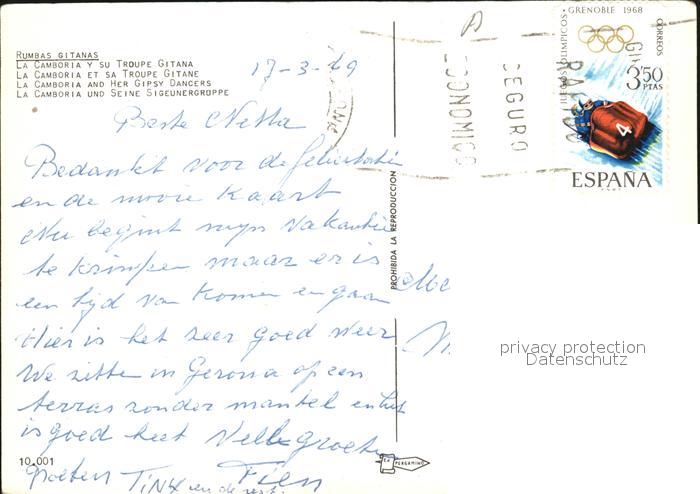 RUMBAS GITANAS
LA CAMBORIA Y SU TROUPE GITANA
LA CAMBORIA ET SA TROUPE GITANE
LA CAMBORIA AND HER GIPSY DANCERS
LA CAMBORIA UND SEINE SIGEUNERGRUPPE
17-3-69
Beste Netta
Bedankt voor de felicitatie
en de mooie kaart
Nu begint mijn vakantie
te krimpen maar er is
een tijd van komen en gaan
Hier is het zeer goed weer
We zitte in Gerona op een
terras zonder mantel en het
is goed heet Vele groeten
Fien
groeten Tinx en de rest.
10.001
PROHIBIDA LA REPRODUCCION
PERGAMINO
SEGURO
ECONOMICO
JUEGOS OLIMPICOS • GRENOBLE 1968
CORREOS
3'50
PTAS
4
ESPAÑA
privacy protection
Datenschutz